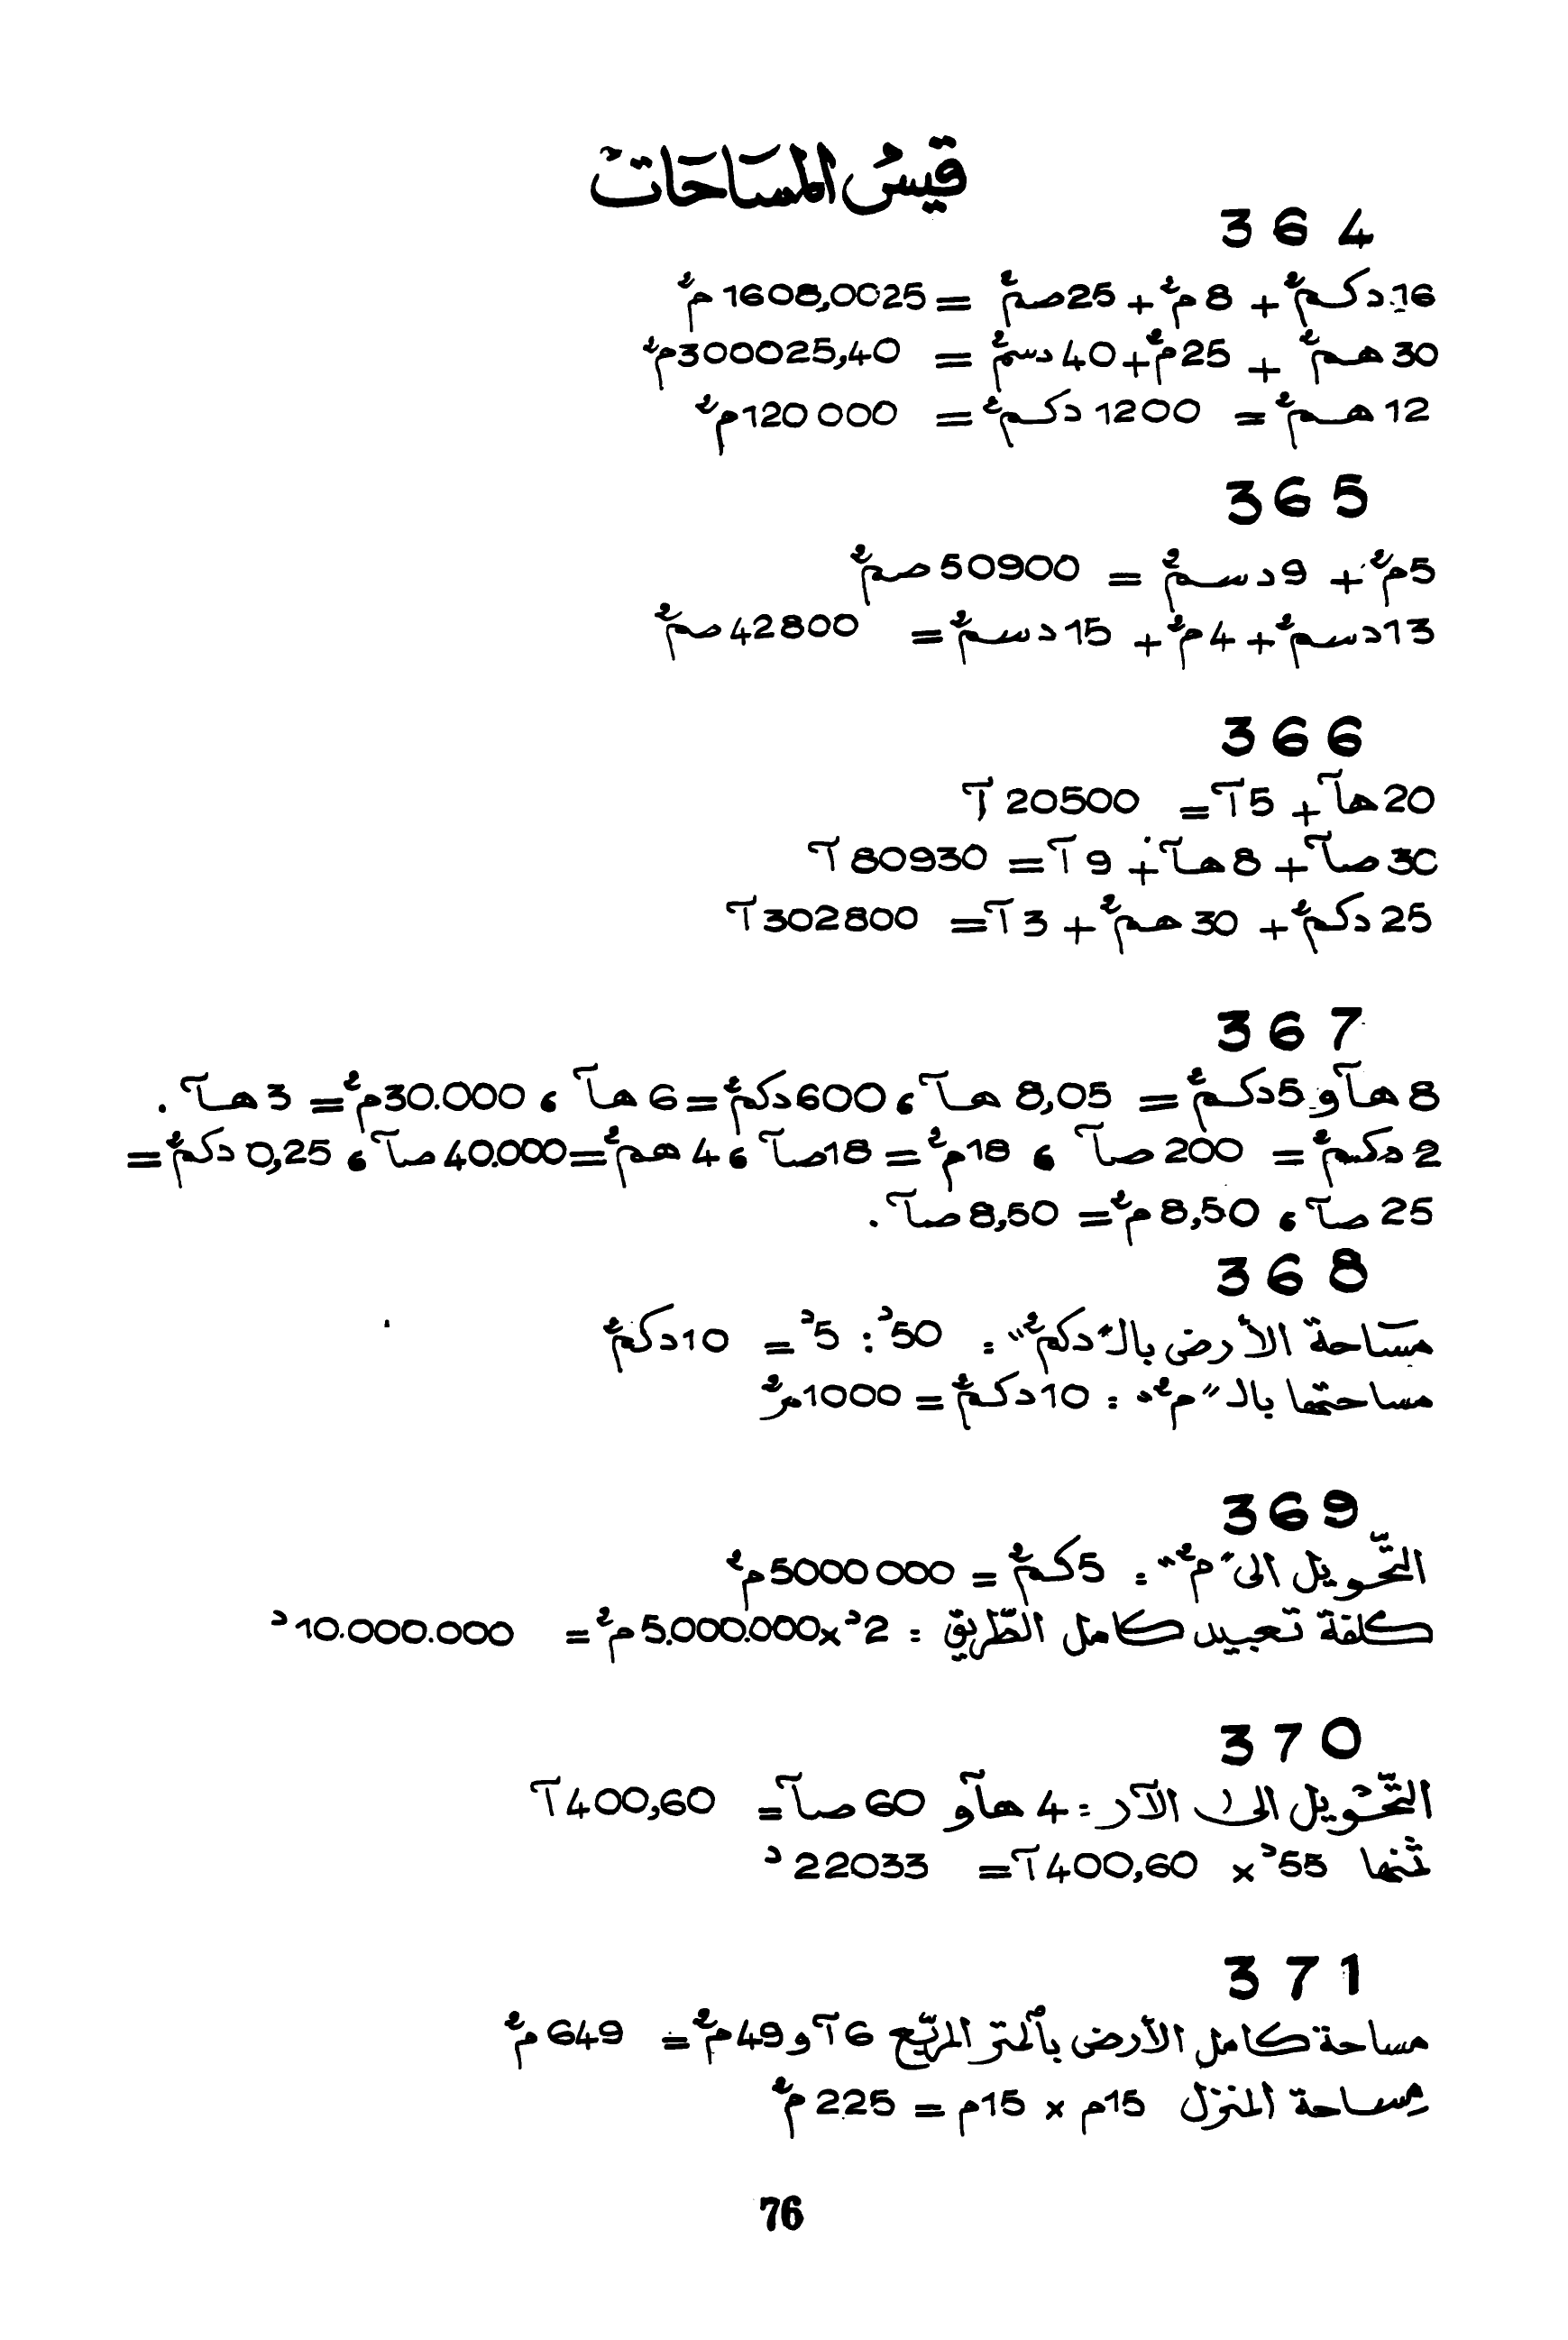 قيسُ المسَاحَات
364
16دكم² + 8م² + 25صم² = 1608,0025 م²
30هم² + 25م² + 40دسم² = 300025,40م²
12هم² = 1200 دكم² = 120 000م²
365
5م² + 9دسم² = 50900صم²
13دسم² + 4م² + 15دسم² = 42800صم²
366
20هآ + 5آ = 20500 آ
30صآ + 8هآ + 9آ = 80930 آ
25دكم² + 30هم² + 3آ = 302800 آ
367
8هآو5دكم² = 8,05 هآ، 600دكم² = 6هآ، 30.000م² = 3هآ.
2دكم² = 200 صآ، 18م² = 18صآ، 4هم² = 40.000صآ، 0,25دكم² =
25صآ، 8,50م² = 8,50صآ.
368
مسَاحة الأرض بالـ "دكم²" : 50د : 5د = 10دكم²
مساحتها بالـ "م²" : 10دكم² = 1000م²
369
التّحويل الى "م²" : 5كم² = 5000 000م²
كلفة تعبيد كامل الطّريق : 2د x 5.000.000م² = 10.000.000د
370
التّحْويل الى الآر : 4هآو 60صآ = 400,60آ
ثمنها 55د x 400,60آ = 22033د
371
مساحة كامل الأرض بالمتر المربّع 6آ و49م² = 649م²
مساحة المنزل 15م x 15م = 225م²
76